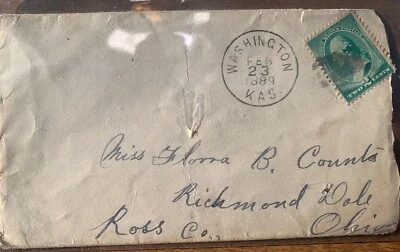 WASHINGTON
FEB
23
1889
KAS.
TWO 2 CENTS
Miss Flora B. Counts
Richmond Dale
Ross Co. Ohio